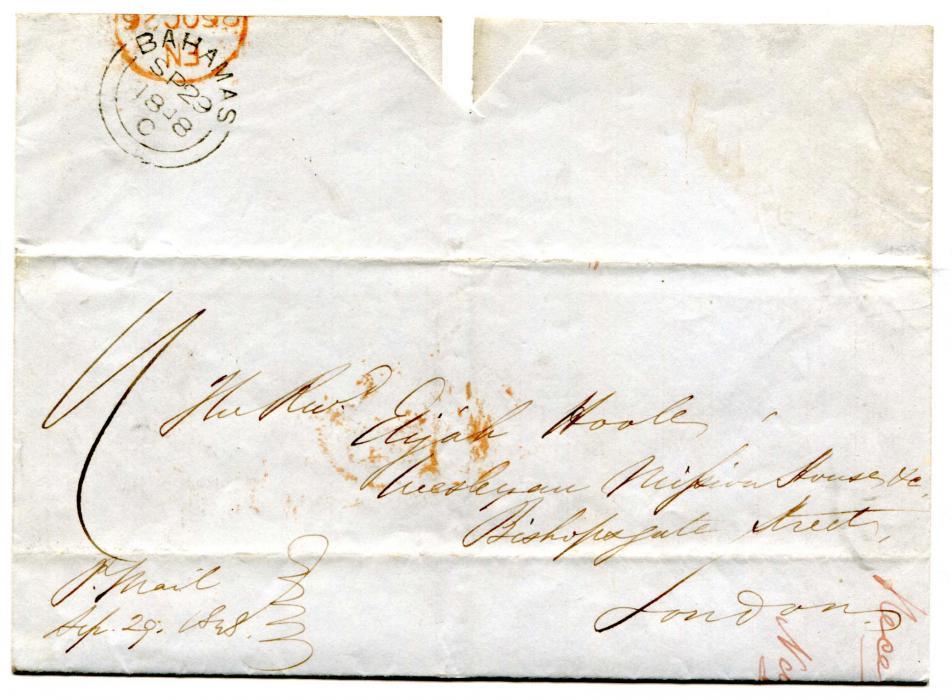 25 OC 25
EN
BAHAMAS
SP 29
1848
C
The Revd. Elijah Hoole
Wesleyan Mission House &c.
Bishopsgate Street,
London.
P. Mail
Sep. 29. 1848.